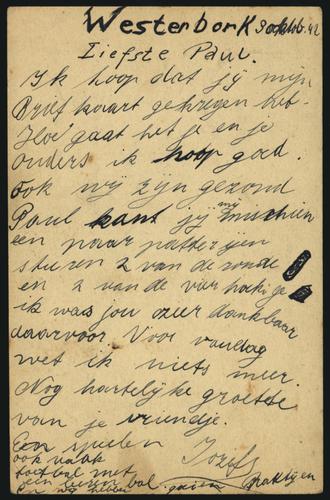 Westerbork 9 october. 42
Liefste Paul.
Ik hoop dat jij mijn
Brief kaart gekregen heb.
Hoe gaat het je en je
ouders ik hoop goed.
Ook wij zijn gezond
Paul kans jij mij mischien
een paar patterijen
sturen 2 van de ronde
en 2 van de vier hoekige
ik was jou zeer dankbaar
daarvoor. Voor vandag
wet ik niets meer.
Nog hartelijke groetes
van je vriendje.
Jozef
ook vaak
voetbal met
bal
en wij hebben